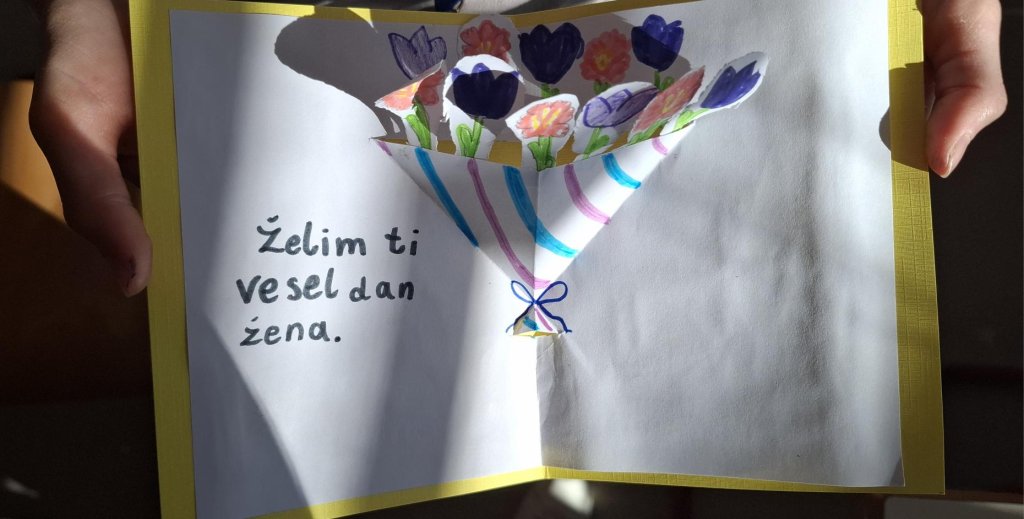 Želim ti
vesel dan
žena.